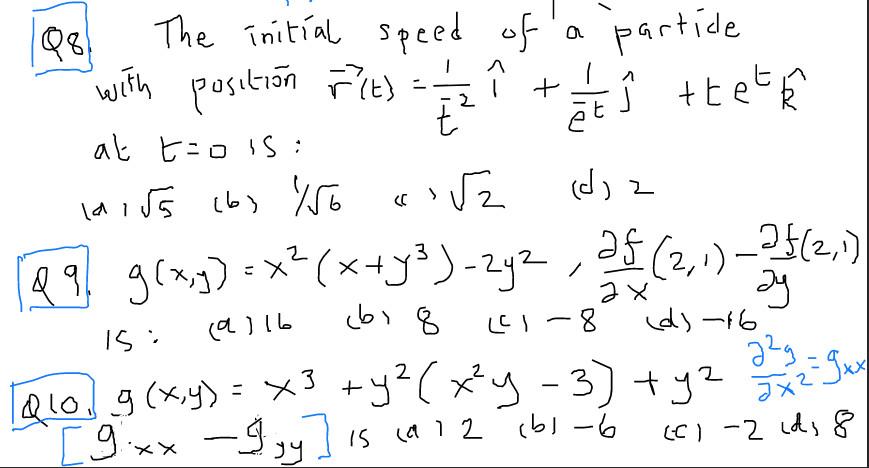 Q8. The initial speed of a particle
with position r⃗(t) = 1/t⁻² î + 1/e⁻ᵗ ĵ + t eᵗ k̂
at t=0 is :
(a) √5 (b) 1/√6 (c) √2 (d) 2
Q9. g(x,y) = x² (x+y³) - 2y² , ∂f/∂x (2,1) - ∂f/∂y (2,1)
is : (a) 16 (b) 8 (c) -8 (d) -16
Q10. g(x,y) = x³ + y² (x²y - 3) + y² ∂²g/∂x² = gₓₓ
[g xx - g yy] is (a) 2 (b) -6 (c) -2 (d) 8